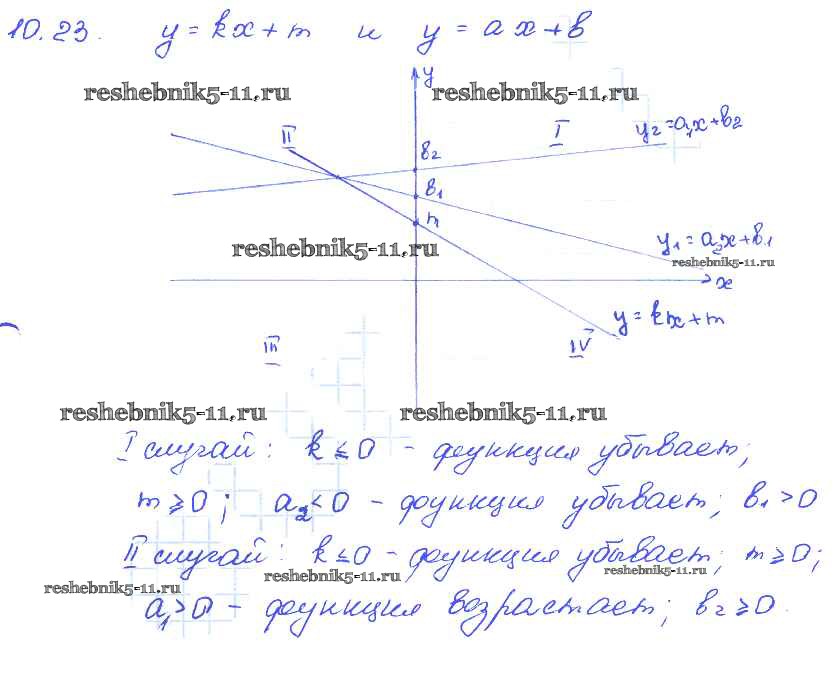 10.23. y = kx + m и y = ax + в
reshebnik5-11.ru
reshebnik5-11.ru
y
II
I
y₂ = a₁x + в₂
в₂
в₁
m
y₁ = a₂x + в₁
reshebnik5-11.ru
reshebnik5-11.ru
x
y = kx + m
III
IV
reshebnik5-11.ru
reshebnik5-11.ru
I случай: k ≤ 0 - функция убывает;
m ≥ 0; a₂ < 0 - функция убывает; в₁ > 0
II случай: k ≤ 0 - функция убывает; m ≥ 0;
reshebnik5-11.ru
reshebnik5-11.ru
reshebnik5-11.ru
a₁ > 0 - функция возрастает; в₂ ≥ 0.